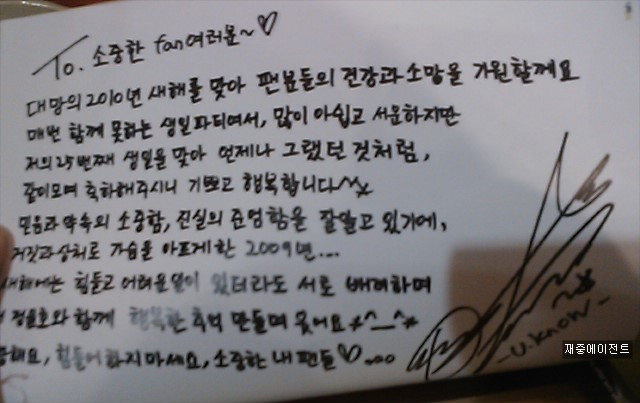 To. 소중한 fan여러분~♡
대망의 2010년 새해를 맞아 팬분들의 건강과 소망을 기원할께요
매번 함께 못하는 생일파티여서, 많이 아쉽고 서운하지만
저의 25번째 생일을 맞아 언제나 그랬던 것처럼,
같이모여 축하해주시니 기쁘고 행복합니다^^*
믿음과 약속의 소중함, 진실의 준엄함을 잘알고 있기에,
거짓과 상처로 가슴을 아프게한 2009년....
새해에는 힘들고 어려운일이 있더라도 서로 배려하며
정윤호와 함께 행복한 추억 만들며 웃어요 *^_^*
해요, 힘들어 하지마세요, 소중한 내 팬들♡....
-U.Know-
재중에이전트